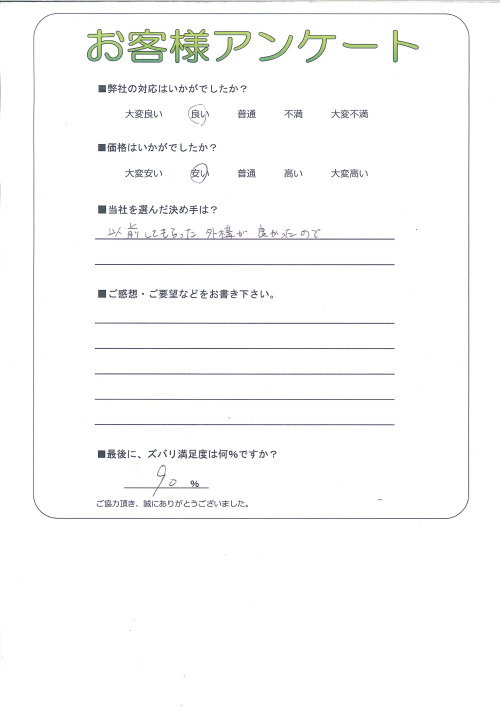 お客様アンケート
■弊社の対応はいかがでしたか？
大変良い 良い 普通 不満 大変不満
■価格はいかがでしたか？
大変安い 安い 普通 高い 大変高い
■当社を選んだ決め手は？
以前してもらった外構が良かったので
■ご感想・ご要望などをお書き下さい。
■最後に、ズバリ満足度は何%ですか？
90 %
ご協力頂き、誠にありがとうございました。